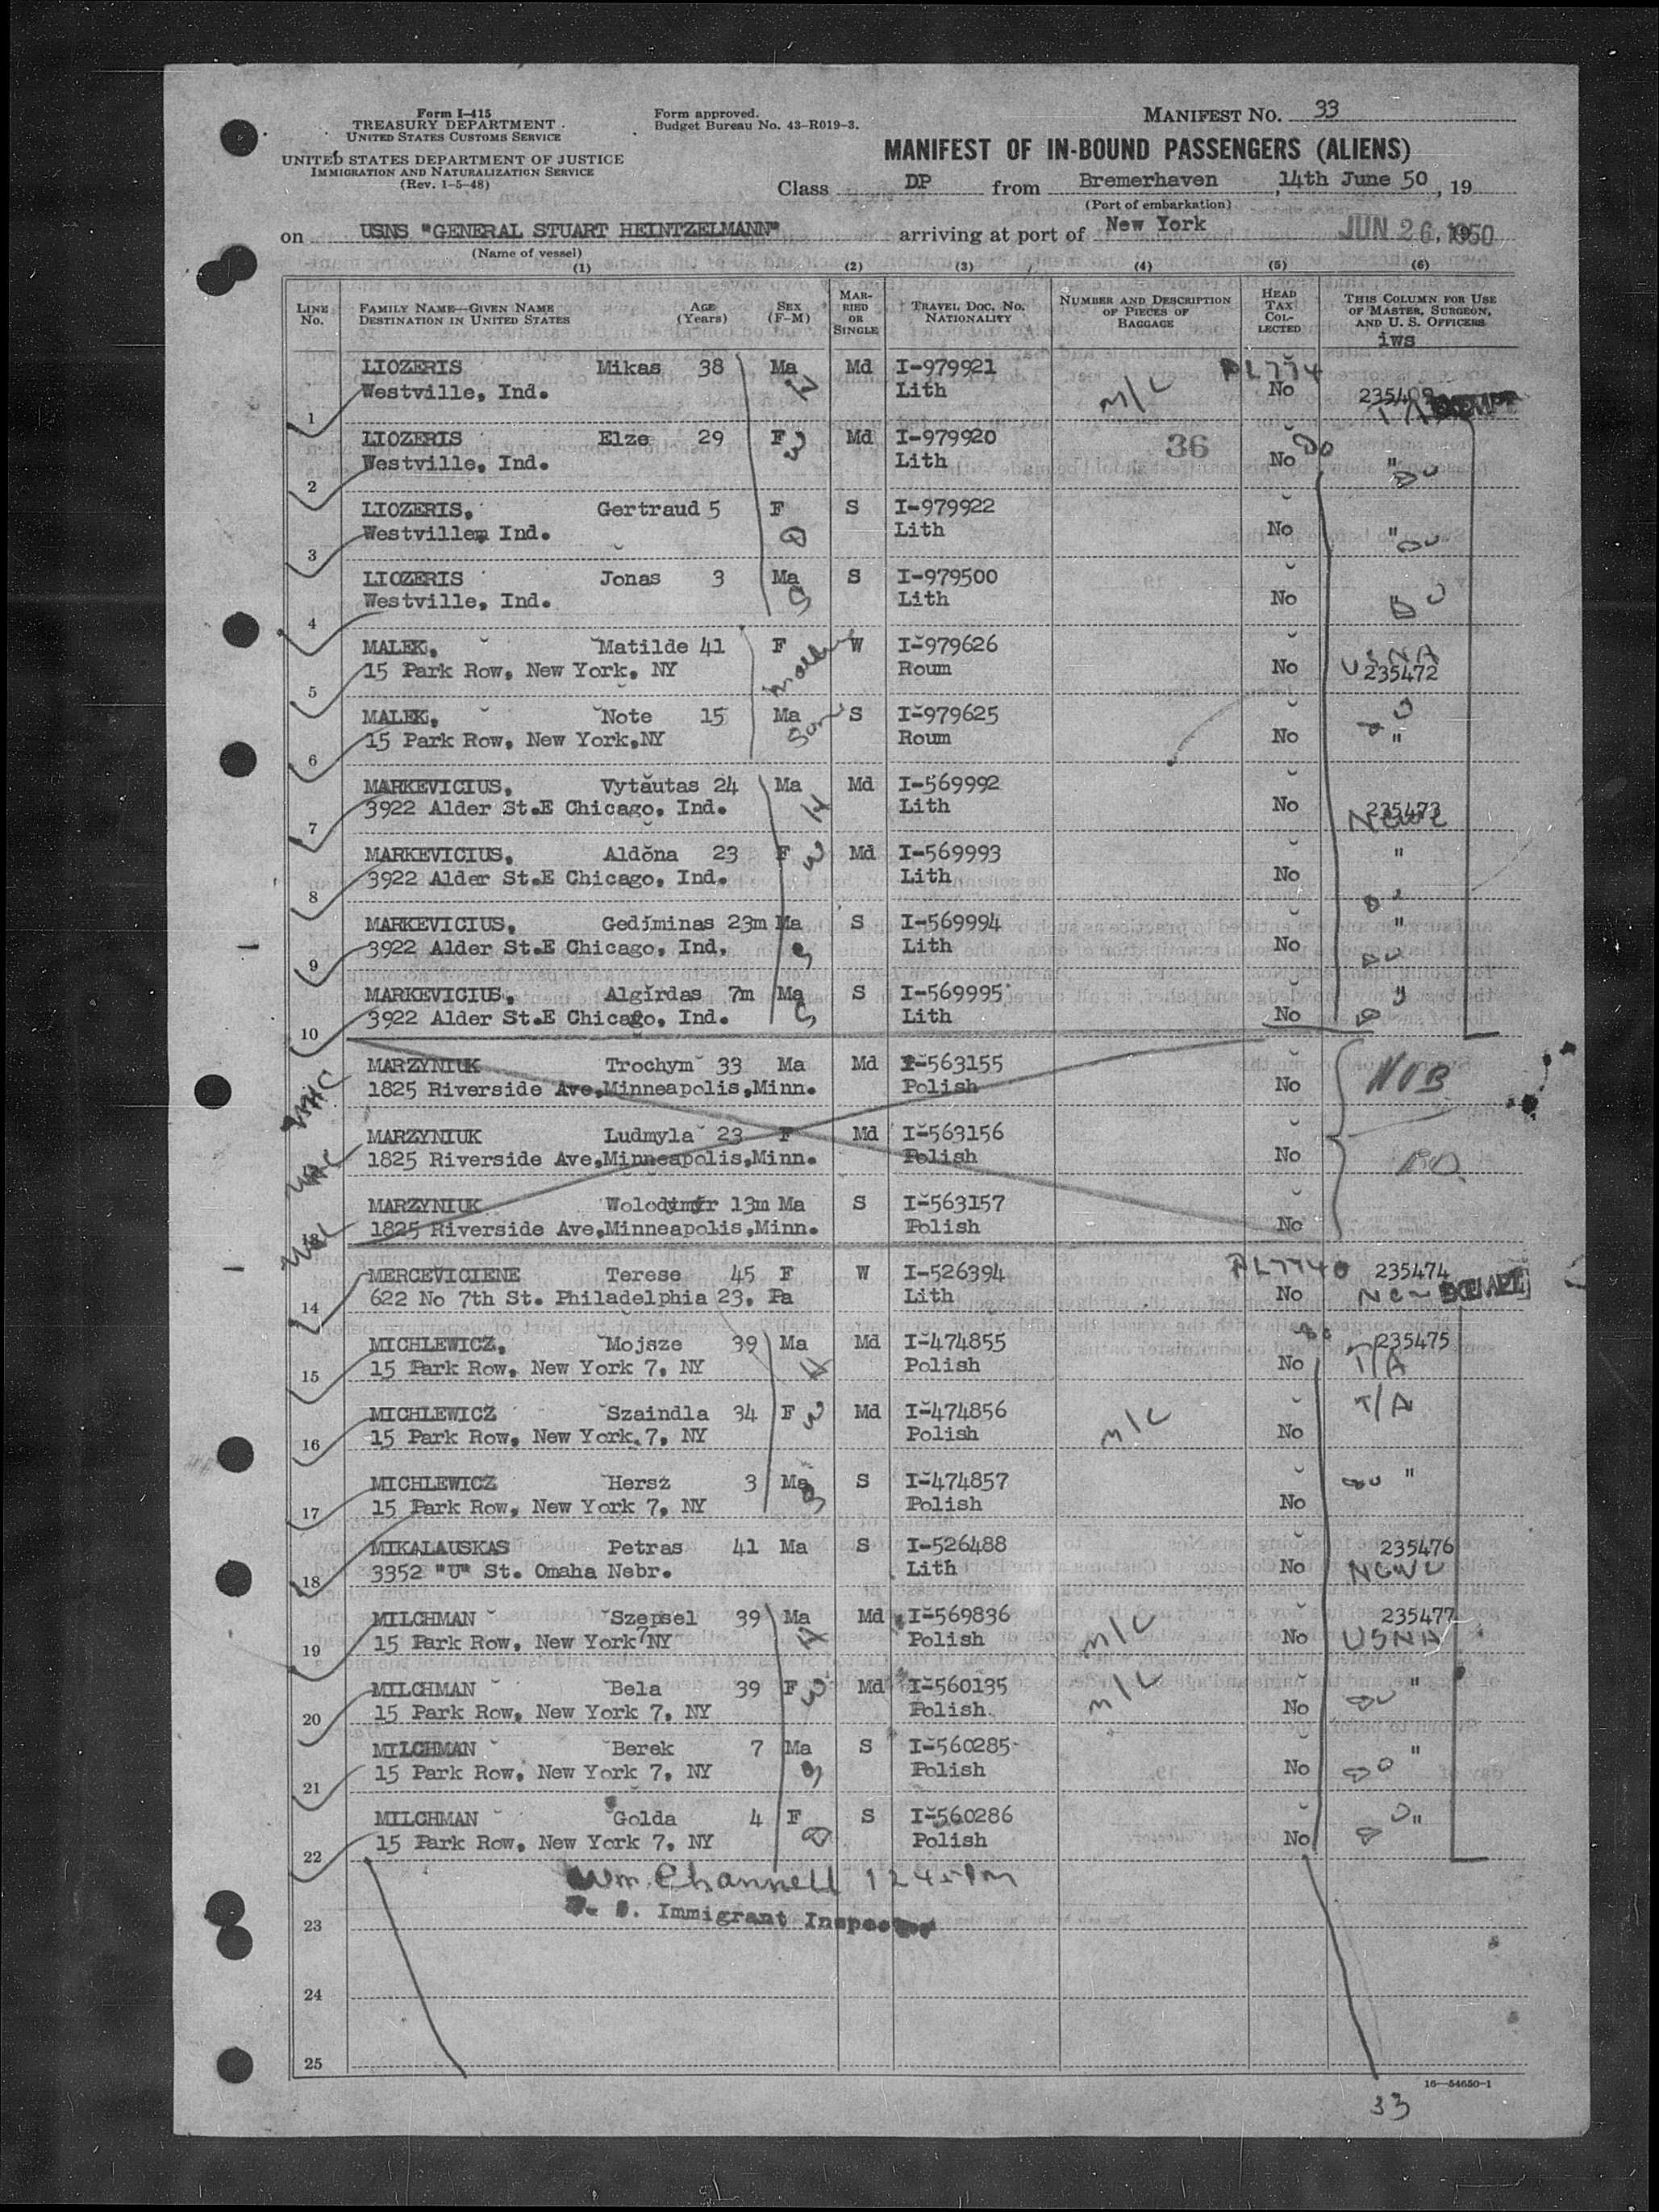 Form I-415
TREASURY DEPARTMENT
UNITED STATES CUSTOMS SERVICE
UNITED STATES DEPARTMENT OF JUSTICE
IMMIGRATION AND NATURALIZATION SERVICE
(Rev. 1-5-48)
Form approved.
Budget Bureau No. 43-R019-3.
MANIFEST NO. 33
MANIFEST OF IN-BOUND PASSENGERS (ALIENS)
Class DP from Bremerhaven 14th June 50, 19
(Port of embarkation)
on USNS "GENERAL STUART HEINTZELMANN" arriving at port of New York JUN 26, 1950
(Name of vessel)
(1) (2) (3) (4) (5) (6)
LINE No. FAMILY NAME—GIVEN NAME DESTINATION IN UNITED STATES AGE (Years) SEX (F-M) MARRIED OR SINGLE TRAVEL DOC. NO. NATIONALITY NUMBER AND DESCRIPTION OF PIECES OF BAGGAGE HEAD TAX COLLECTED THIS COLUMN FOR USE OF MASTER, SURGEON, AND U. S. OFFICERS
iws
LIOZERIS Mikas 38 Ma Md I-979921 PL774
1 Westville, Ind. H Lith M/C No 235409 T/A EXEMPT
LIOZERIS Elze 29 F W Md I-979920 36 Do
2 Westville, Ind. Lith No " Do
LIOZERIS, Gertraud 5 F S I-979922
3 Westvillem Ind. D Lith No " Do
LIOZERIS Jonas 3 Ma S I-979500
4 Westville, Ind. S Lith No " Do
MALEK, Matilde 41 F Mother W I-979626 USNA
5 15 Park Row, New York, NY Roum No 235472
MALEK, Note 15 Ma Son S I-979625 Do
6 15 Park Row, New York,NY Roum No "
MARKEVICIUS, Vytautas 24 Ma Md I-569992
7 3922 Alder St.E Chicago, Ind. H Lith No 235473 NCWC
MARKEVICIUS, Aldona 23 F W Md I-569993 "
8 3922 Alder St.E Chicago, Ind. Lith No Do
MARKEVICIUS, Gediminas 23m Ma S I-569994 "
9 3922 Alder St.E Chicago, Ind, S Lith No Do
MARKEVICIUS, Algirdas 7m Ma S I-569995 "
10 3922 Alder St.E Chicago, Ind. S Lith No Do
MARZYNIUK Trochym 33 Ma Md I-563155
1825 Riverside Ave,Minneapolis,Minn. Polish No NOB
MARZYNIUK Ludmyla 23 F Md I-563156
1825 Riverside Ave,Minneapolis,Minn. Polish No
MARZYNIUK Wolodymyr 13m Ma S I-563157
13 1825 Riverside Ave,Minneapolis,Minn. Polish No
MERCEVICIENE Terese 45 F W I-526394 PL774 235474
14 622 No 7th St. Philadelphia 23, Pa Lith No EXEMPT
MICHLEWICZ, Mojsze 39 Ma Md I-474855 Do 235475
15 15 Park Row, New York 7, NY H Polish No T/A
MICHLEWICZ Szaindla 34 F W Md I-474856 T/A
16 15 Park Row, New York 7, NY Polish M/C No
MICHLEWICZ Hersz 3 Ma S I-474857 Do "
17 15 Park Row, New York 7, NY S Polish No
MIKALAUSKAS Petras 41 Ma S I-526488 235476
18 3352 "U" St. Omaha Nebr. Lith No NCWC
MILCHMAN Szepsel 39 Ma Md I-569836 235477
19 15 Park Row, New York 7 NY H Polish M/C No USNA
MILCHMAN Bela 39 F W Md I-560135 M/C "
20 15 Park Row, New York 7, NY Polish. No Do
MILCHMAN Berek 7 Ma S I-560285 "
21 15 Park Row, New York 7, NY S Polish No Do
MILCHMAN Golda 4 F S I-560286 "
22 15 Park Row, New York 7, NY D Polish No Do
Wm. Channell 1245 Pm
23 Immigrant Inspector
24
25
16—54650-1
33